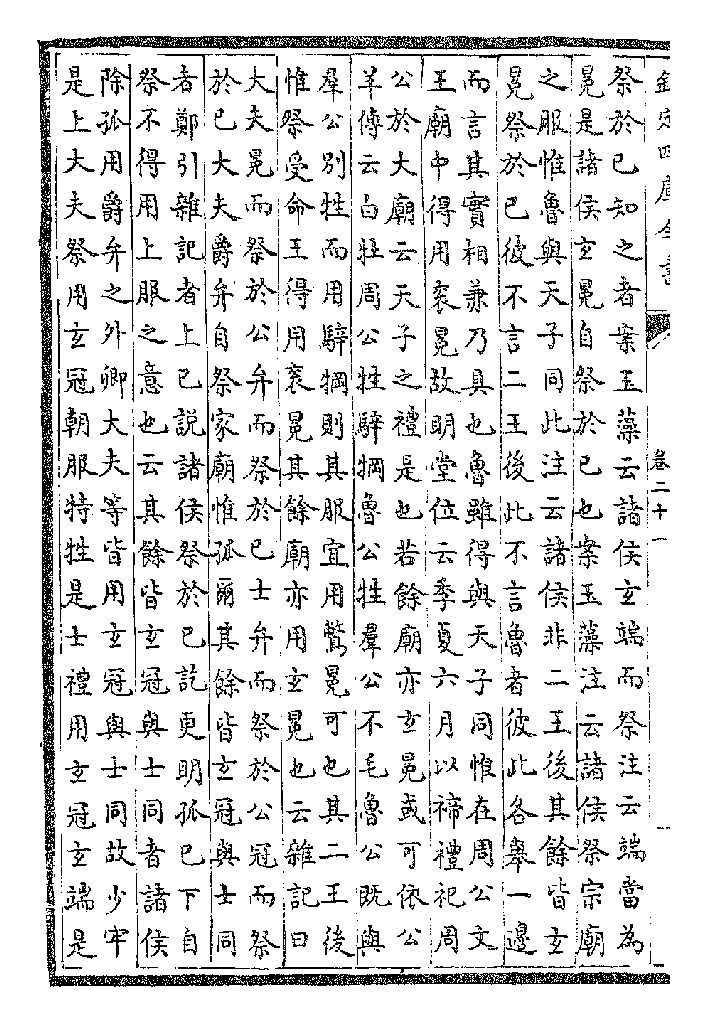 欽定四庫全書
卷二十一
祭於己知之者案玉藻云諸侯玄端而祭注云端當為
冕是諸侯玄冕自祭於己也案玉藻注云諸侯祭宗廟
之服惟魯與天子同此注云諸侯非二王後其餘皆玄
冕祭於己彼不言二王後此不言魯者彼此各舉一邊
而言其實相兼乃具也魯雖得與天子同惟在周公文
王廟中得用衮冕故明堂位云季夏六月以禘禮祀周
公於大廟云天子之禮是也若餘廟亦玄冕或可依公
羊傳云白牡周公牲騂犅魯公牲羣公不毛魯公既與
羣公別牲而用騂犅則其服宜用鷩冕可也其二王後
惟祭受命王得用衮冕其餘廟亦用玄冕也云雜記曰
大夫冕而祭於公弁而祭於己士弁而祭於公冠而祭
於己大夫爵弁自祭家廟惟孤爾其餘皆玄冠與士同
者鄭引雜記者上已說諸侯祭於己訖更明孤已下自
祭不得用上服之意也云其餘皆玄冠與士同者諸侯
除孤用爵弁之外卿大夫等皆用玄冠與士同故少牢
是上大夫祭用玄冠朝服特牲是士禮用玄冠玄端是